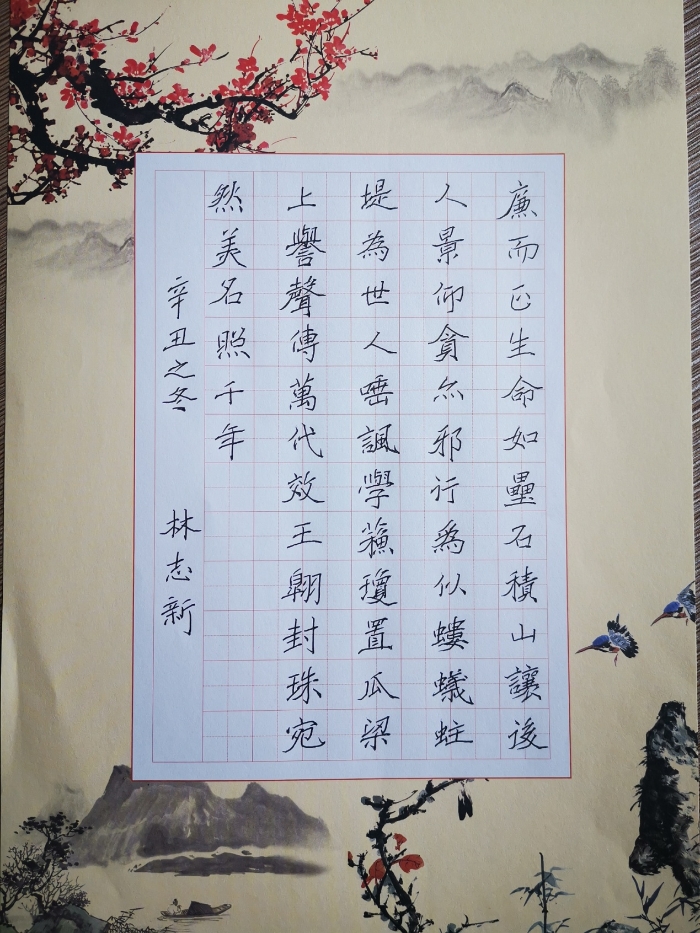 廉而正生命如壘石積山讓後
人景仰貪尒邪行為似螻蟻蛀
堤為世人唾諷學蘓瓊置瓜梁
上譽聲傳萬代效王翱封珠宛
然美名照千年
辛丑之冬 林志新